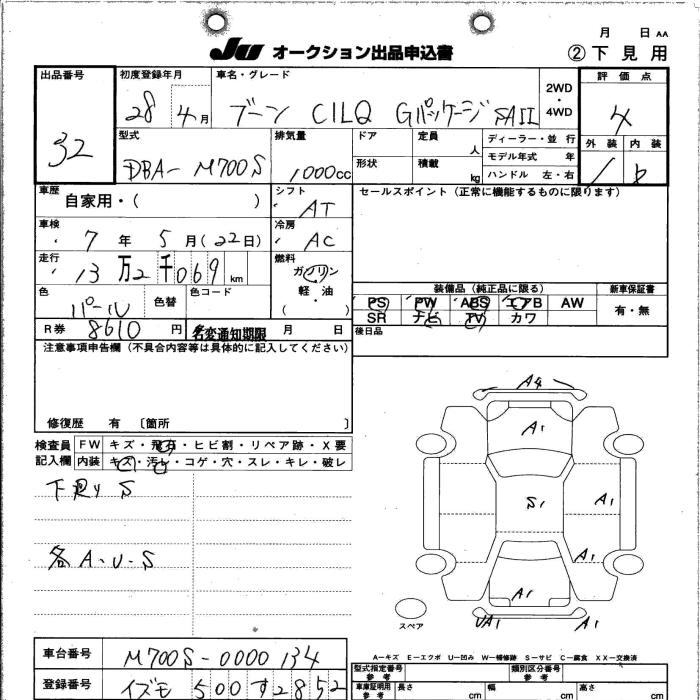 月 日 AA
JU オークション出品申込書 ②下見用
出品番号 初度登録年月 車名・グレード 2WD・4WD 評価点
32 28 4月 ブーン CILQ Gパッケージ SAII 4
型式 排気量 ドア 定員 人 ディーラー・並 行 外装 内装
DBA-M700S 1000cc 形状 積載 kg モデル年式 年
ハンドル 左・右
車歴 自家用・( ) シフト AT セールスポイント(正常に機能するものに限ります)
車検 7年 5月(22日) 冷房 AC
走行 13万2千069km 燃料 ガソリン
軽・油
( )
色 パール 色替 色コード 装備品(純正品に限る) 新車保証書
PS PW ABS エアB AW 有・無
SR ナビ TV カワ
R券 8610円 名変通知期限 月 日 後日品
注意事項申告欄(不具合内容等は具体的に記入してください)
修復歴 有 〔箇所 〕
検査員 FW キズ・飛石・ヒビ割・リペア跡・X要
記入欄 内装 キズ・汚レ・コゲ・穴・スレ・キレ・破レ
下廻りS
各A・U・S
A4
A1
S1 A1
A1
A1
UA1 A1
スペア
A-キズ E-エクボ U-凹み W-補修跡 S-サビ C-腐食 XX-交換済
車台番号 M700S-0000134
型式指定番号 参考 類別区分番号 参考
登録番号 イズモ 500 す 2852
車庫証明用 参考 長さ cm 幅 cm 高さ cm